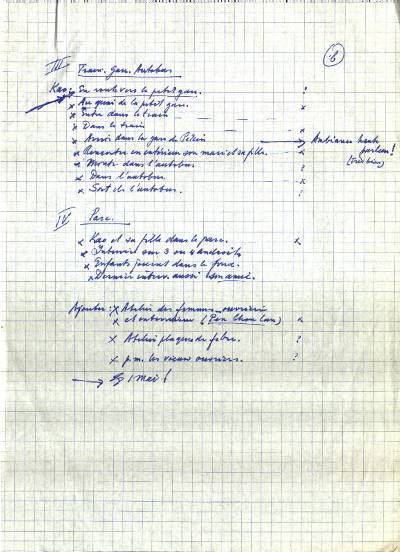 6
III Train. Gare. Autobus
Kao: En route vers la petite gare. ?
x Au quai de la petite gare. x
x Entre dans le train
x Dans le train x
x Arrivée dans la gare de Pékin → Ambiance haut
x Rencontre en extérieur son mari et sa fille. x parleur!
x Monte dans l'autobus ? (très bien)
x Dans l'autobus x
x Sort de l'autobus. ?
IV Parc.
x Kao et sa fille dans le parc. x
x Interview sur 3 ou 4 endroits
x Enfants jouent dans le fond.
x Dernier interv. aussi
Ajouter: x Atelier des femmes ouvrières
x et intervieweur (Pen Chou Lan) x
x Atelier plaques de fibre. ?
x p.m. les vieux ouvriers. ?
→ 1 Mai!